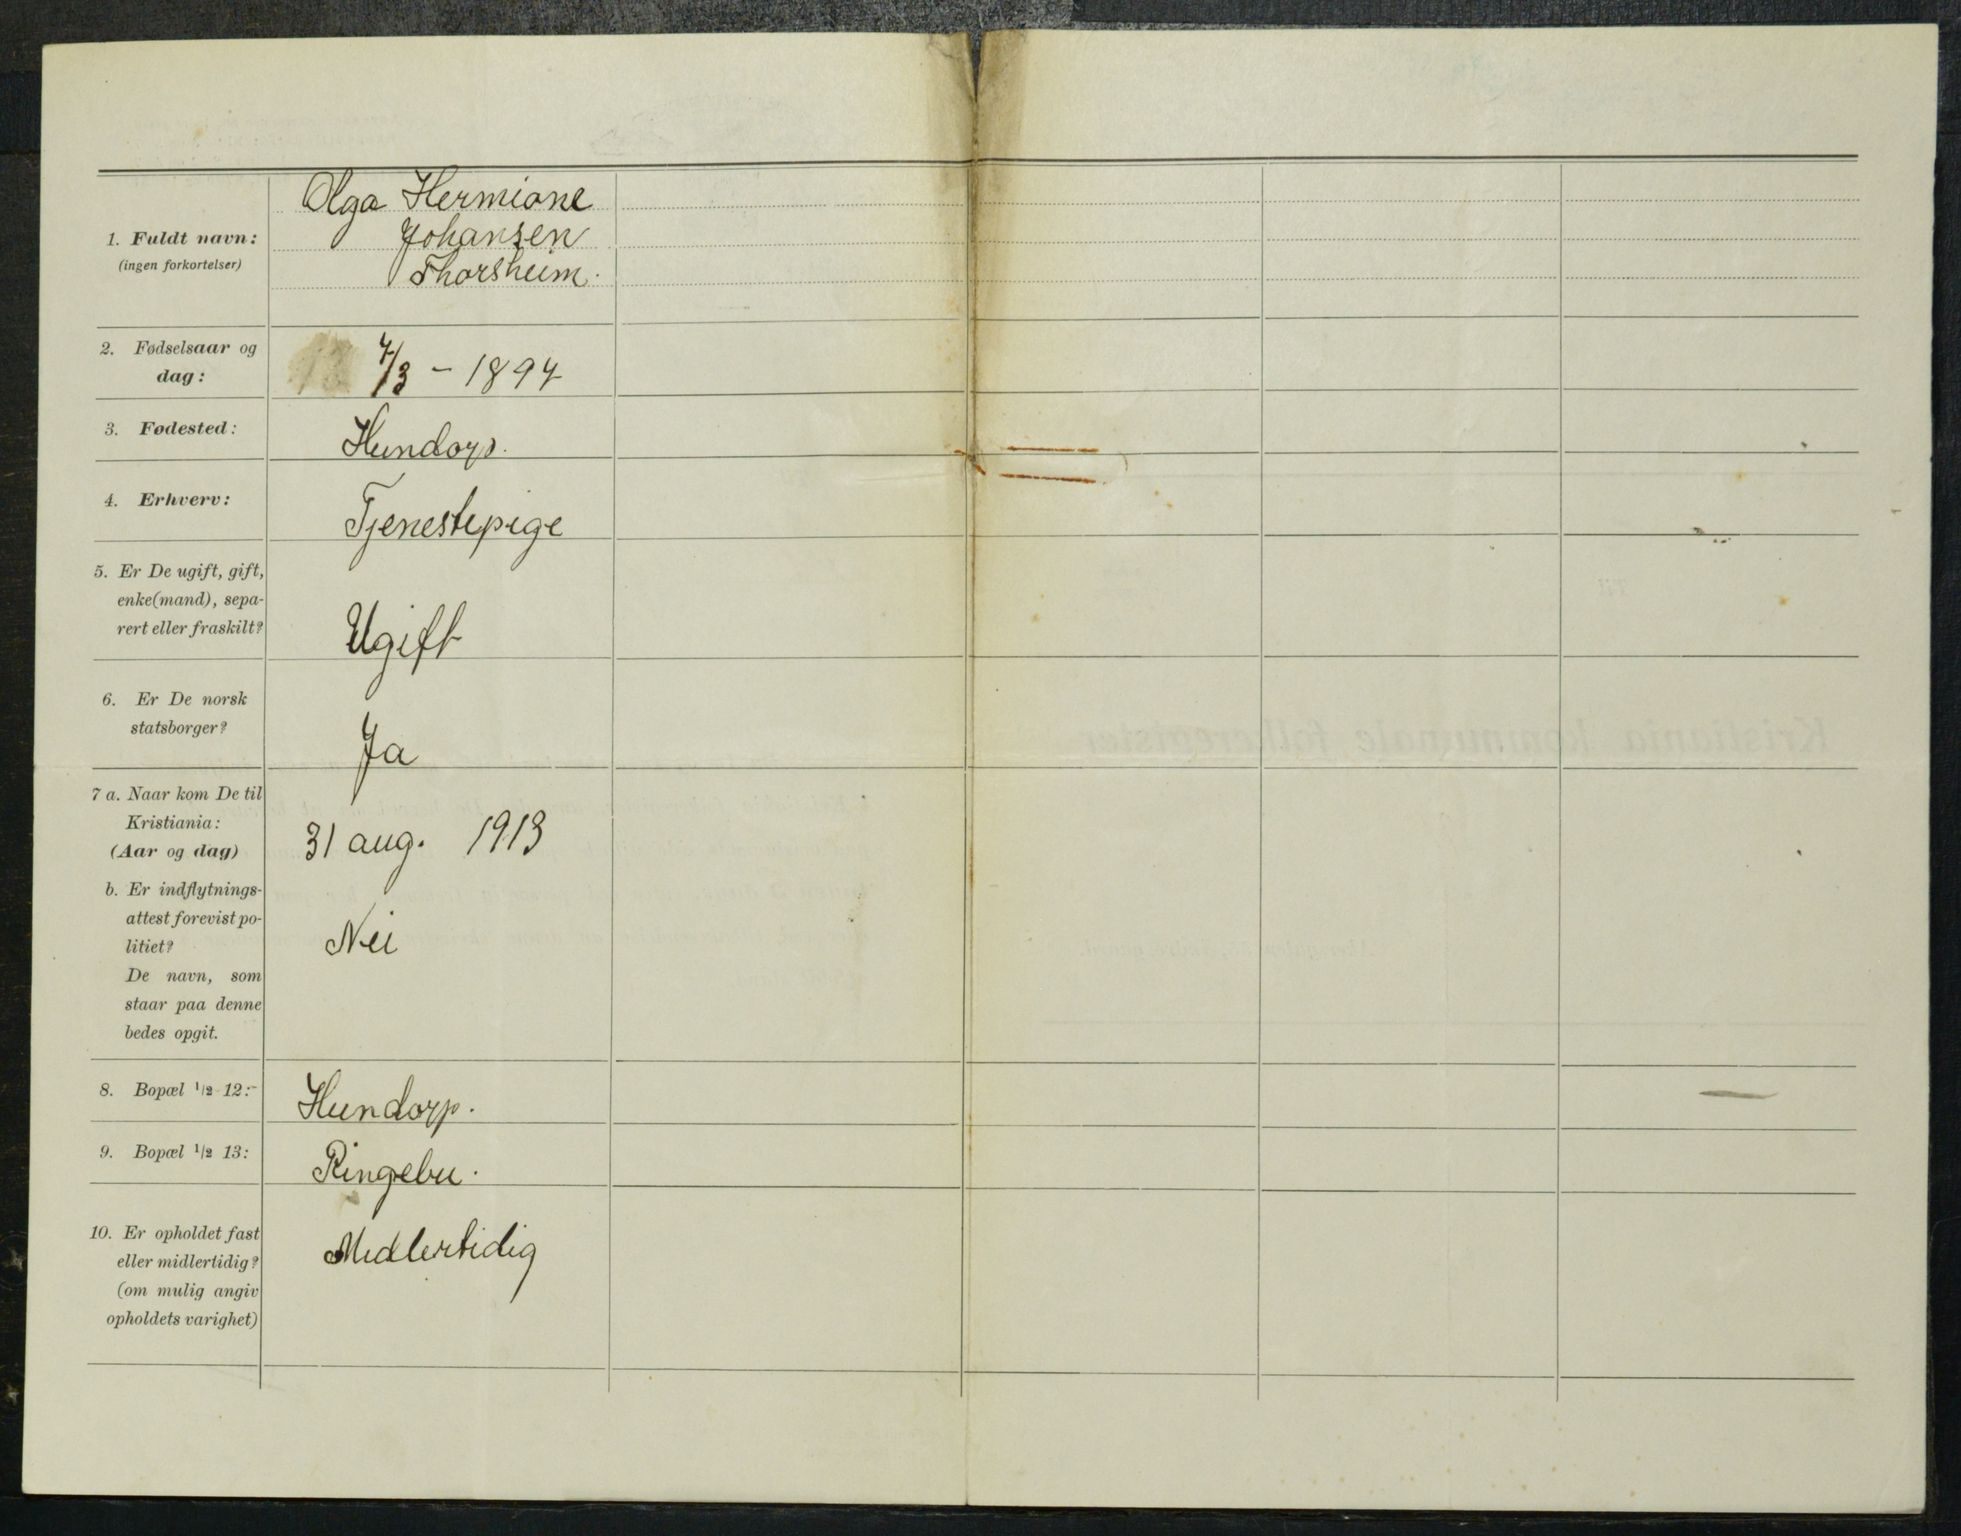 1. Fuldt navn:
(ingen forkortelser)
Olga Hermione
Johansen
Thorsheim.
2. Fødselsaar og
dag:
4/3 - 1894
3. Fødested:
Hundorp.
4. Erhverv:
Tjenestepige
5. Er De ugift, gift,
enke(mand), sepa-
rert eller fraskilt?
Ugift
6. Er De norsk
statsborger?
Ja
7 a. Naar kom De til
Kristiania:
(Aar og dag)
31 aug. 1913
b. Er indflytnings-
attest forevist po-
litiet?
De navn, som
staar paa denne
bedes opgit.
Nei
8. Bopæl 1/2 12:
Hundorp.
9. Bopæl 1/2 13:
Ringebu.
10. Er opholdet fast
eller midlertidig?
(om mulig angiv
opholdets varighet)
Midlertidig